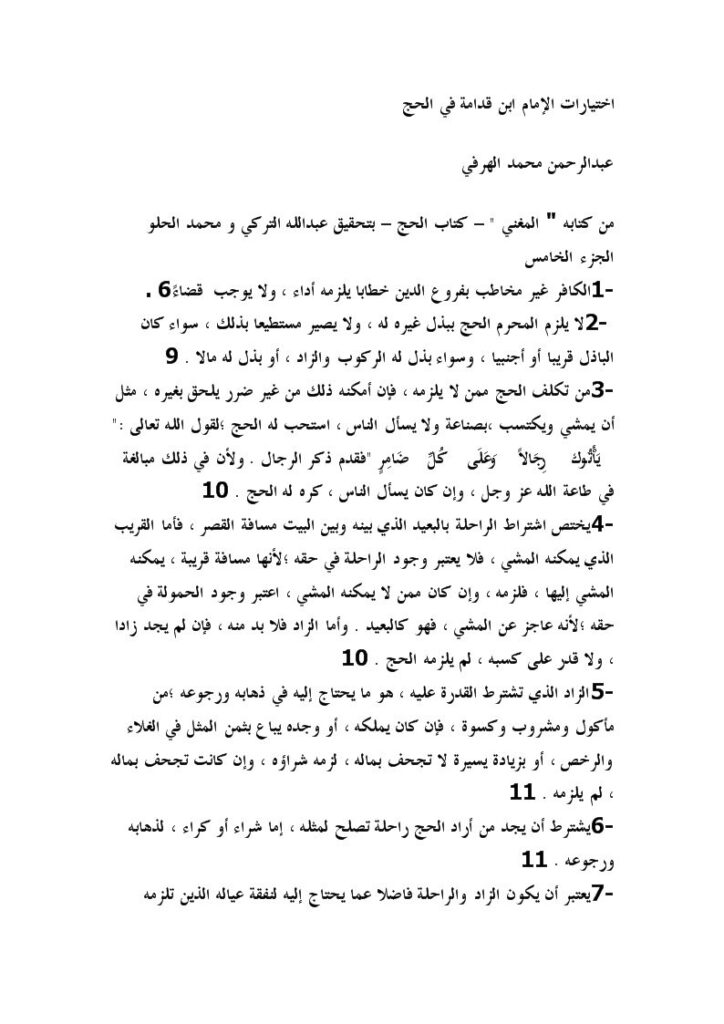 اختيارات الإمام ابن قدامة في الحج
عبدالرحمن محمد الهرفي
من كتابه " المغني " – كتاب الحج – بتحقيق عبدالله التركي و محمد الحلو
الجزء الخامس
1-الكافر غير مخاطب بفروع الدين خطابا يلزمه أداء ، ولا يوجب قضاءً6 .
2- لا يلزم المحرم الحج ببذل غيره له ، ولا يصير مستطيعا بذلك ، سواء كان
الباذل قريبا أو أجنبيا ، وسواء بذل له الركوب والزاد ، أو بذل له مالا . 9
3-من تكلف الحج ممن لا يلزمه ، فإن أمكنه ذلك من غير ضرر يلحق بغيره ، مثل
أن يمشي ويكتسب ،بصناعة ولا يسأل الناس ، استحب له الحج ؛لقول الله تعالى :"
يَأْتُوكَ رِجَالاً وَعَلَى كُلِّ ضَامِرٍ "فقدم ذكر الرجال . ولأن في ذلك مبالغة
في طاعة الله عز وجل ، وإن كان يسأل الناس ، كره له الحج . 10
4-يختص اشتراط الراحلة بالبعيد الذي بينه وبين البيت مسافة القصر ، فأما القريب
الذي يمكنه المشي ، فلا يعتبر وجود الراحلة في حقه ؛لأنها مسافة قريبة ، يمكنه
المشي إليها ، فلزمه ، وإن كان ممن لا يمكنه المشي ، اعتبر وجود الحمولة في
حقه ؛لأنه عاجز عن المشي ، فهو كالبعيد . وأما الزاد فلا بد منه ، فإن لم يجد زادا
، ولا قدر على كسبه ، لم يلزمه الحج . 10
5-الزاد الذي تشترط القدرة عليه ، هو ما يحتاج إليه في ذهابه ورجوعه ؛من
مأكول ومشروب وكسوة ، فإن كان يملكه ، أو وجده يباع بثمن المثل في الغلاء
والرخص ، أو بزيادة يسيرة لا تجحف بماله ، لزمه شراؤه ، وإن كانت تجحف بماله
، لم يلزمه . 11
6-يشترط أن يجد من أراد الحج راحلة تصلح لمثله ، إما شراء أو كراء ، لذهابه
ورجوعه . 11
7-يعتبر أن يكون الزاد والراحلة فاضلا عما يحتاج إليه لنفقة عياله الذين تلزمه